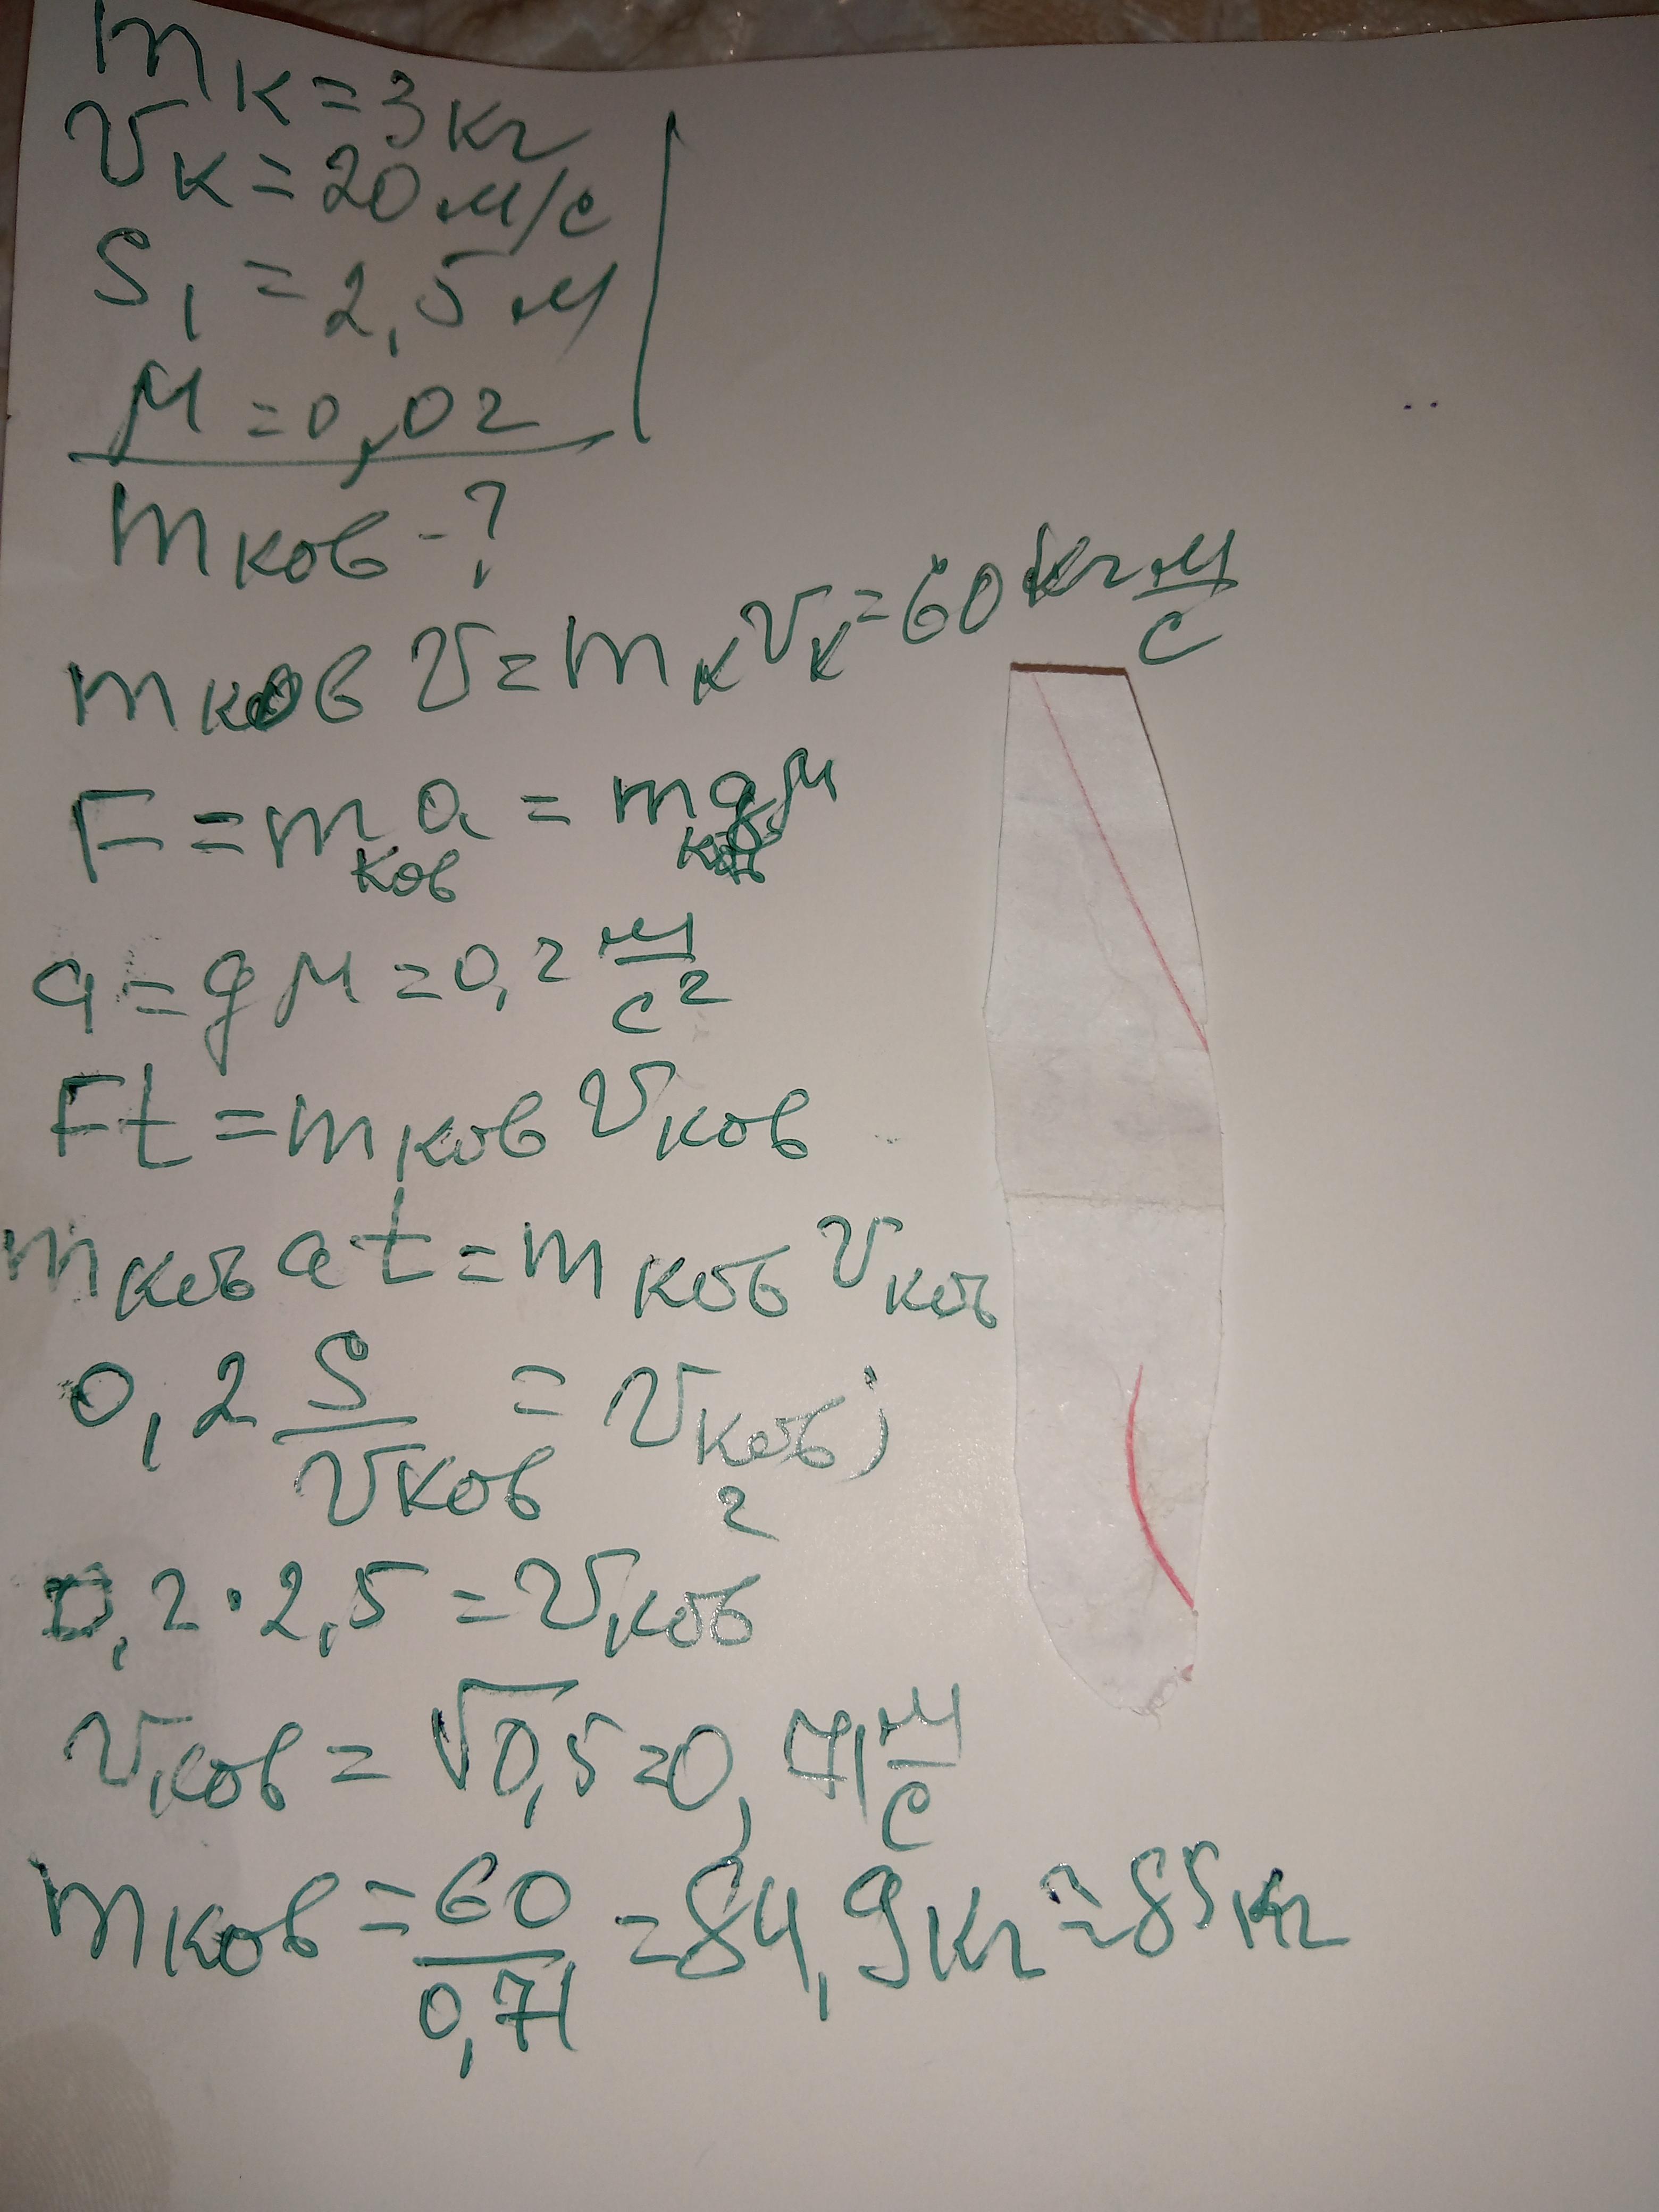 mк = 3 кг
vк = 20 м/с
S1 = 2,5 м
μ = 0,02
mков - ?
mков v = mк vк = 60 кг м/с
F = mков a = mков g μ
a = g μ = 0,2 м/с²
Ft = mков vков
mков a t = mков vков
0,2 S/vков = vков ;
0,2 · 2,5 = vков²
vков = √0,5 = 0,71 м/с
mков = 60/0,71 = 84,9 кг ≈ 85 кг